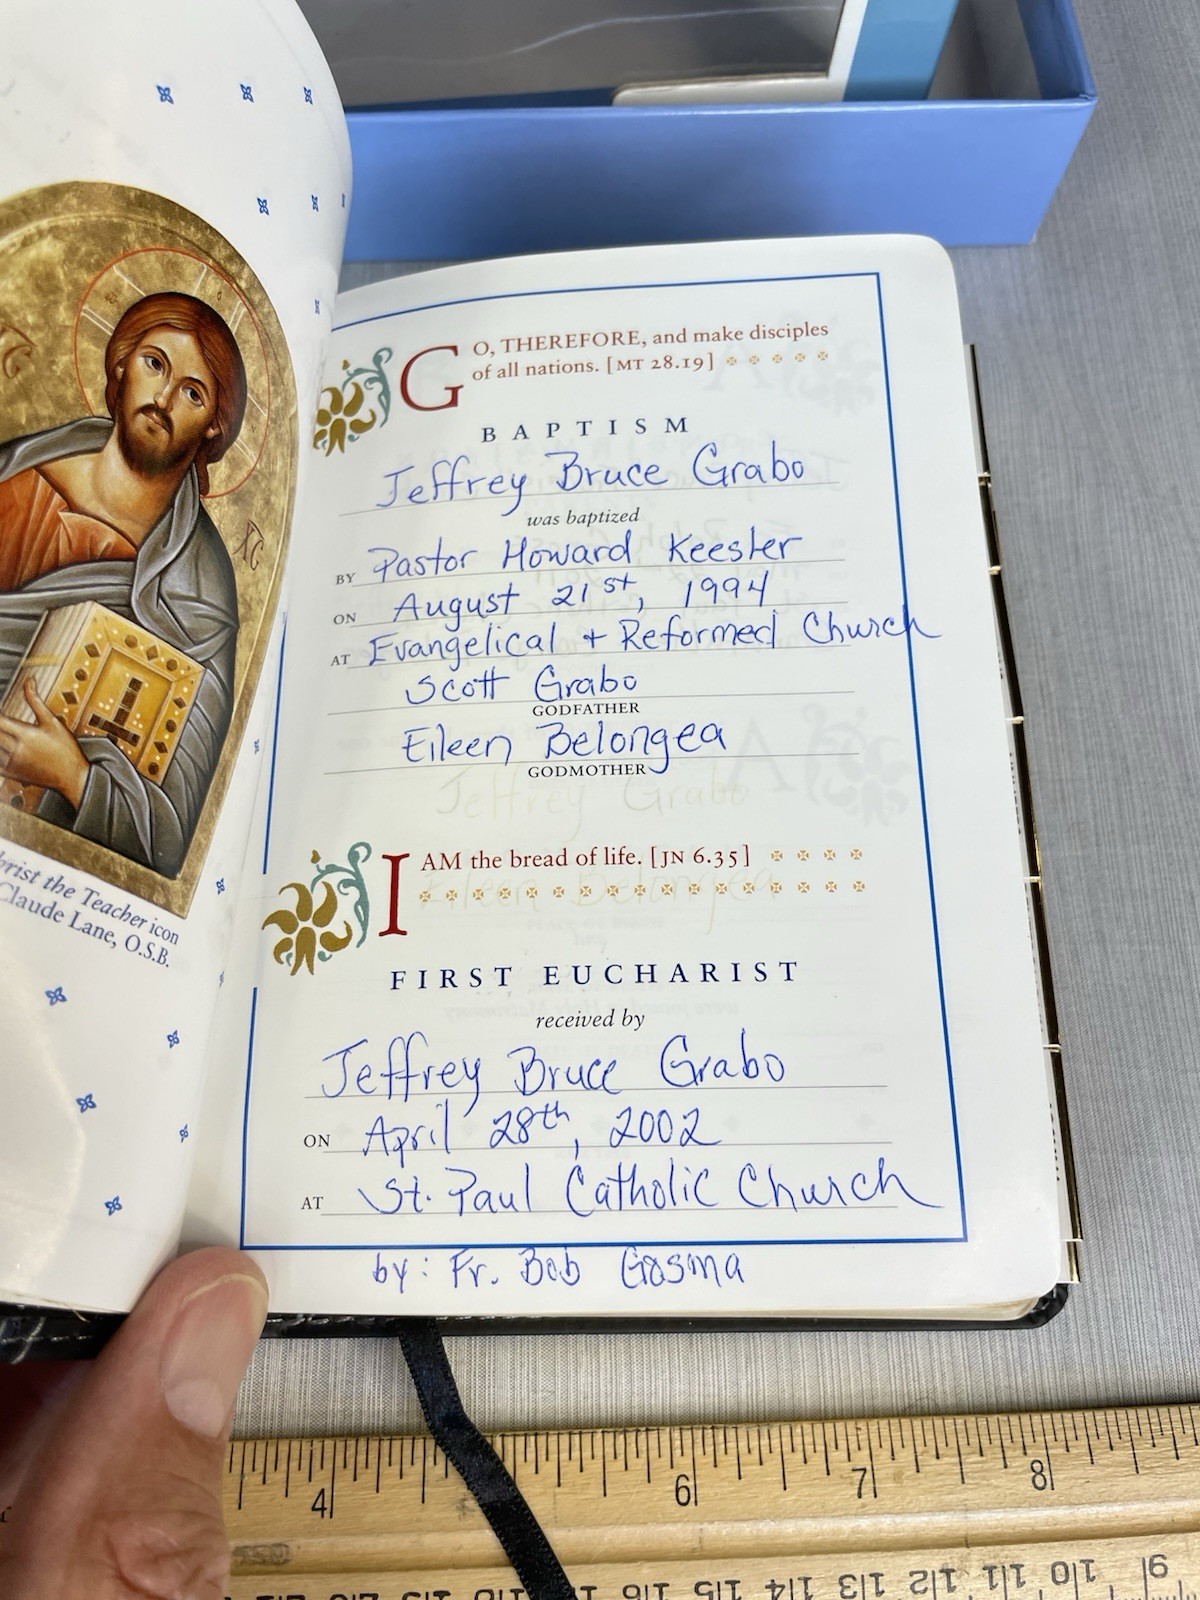 Christ the Teacher icon
Claude Lane, O.S.B.
GO, THEREFORE, and make disciples
of all nations. [MT 28.19]
BAPTISM
Jeffrey Bruce Grabo
was baptized
BY Pastor Howard Keester
ON August 21st, 1994
AT Evangelical + Reformed Church
Scott Grabo
GODFATHER
Eileen Belongea
GODMOTHER
I AM the bread of life. [JN 6.35]
FIRST EUCHARIST
received by
Jeffrey Bruce Grabo
ON April 28th, 2002
AT St. Paul Catholic Church
by: Fr. Bob Gosma
4 6 7 8
9